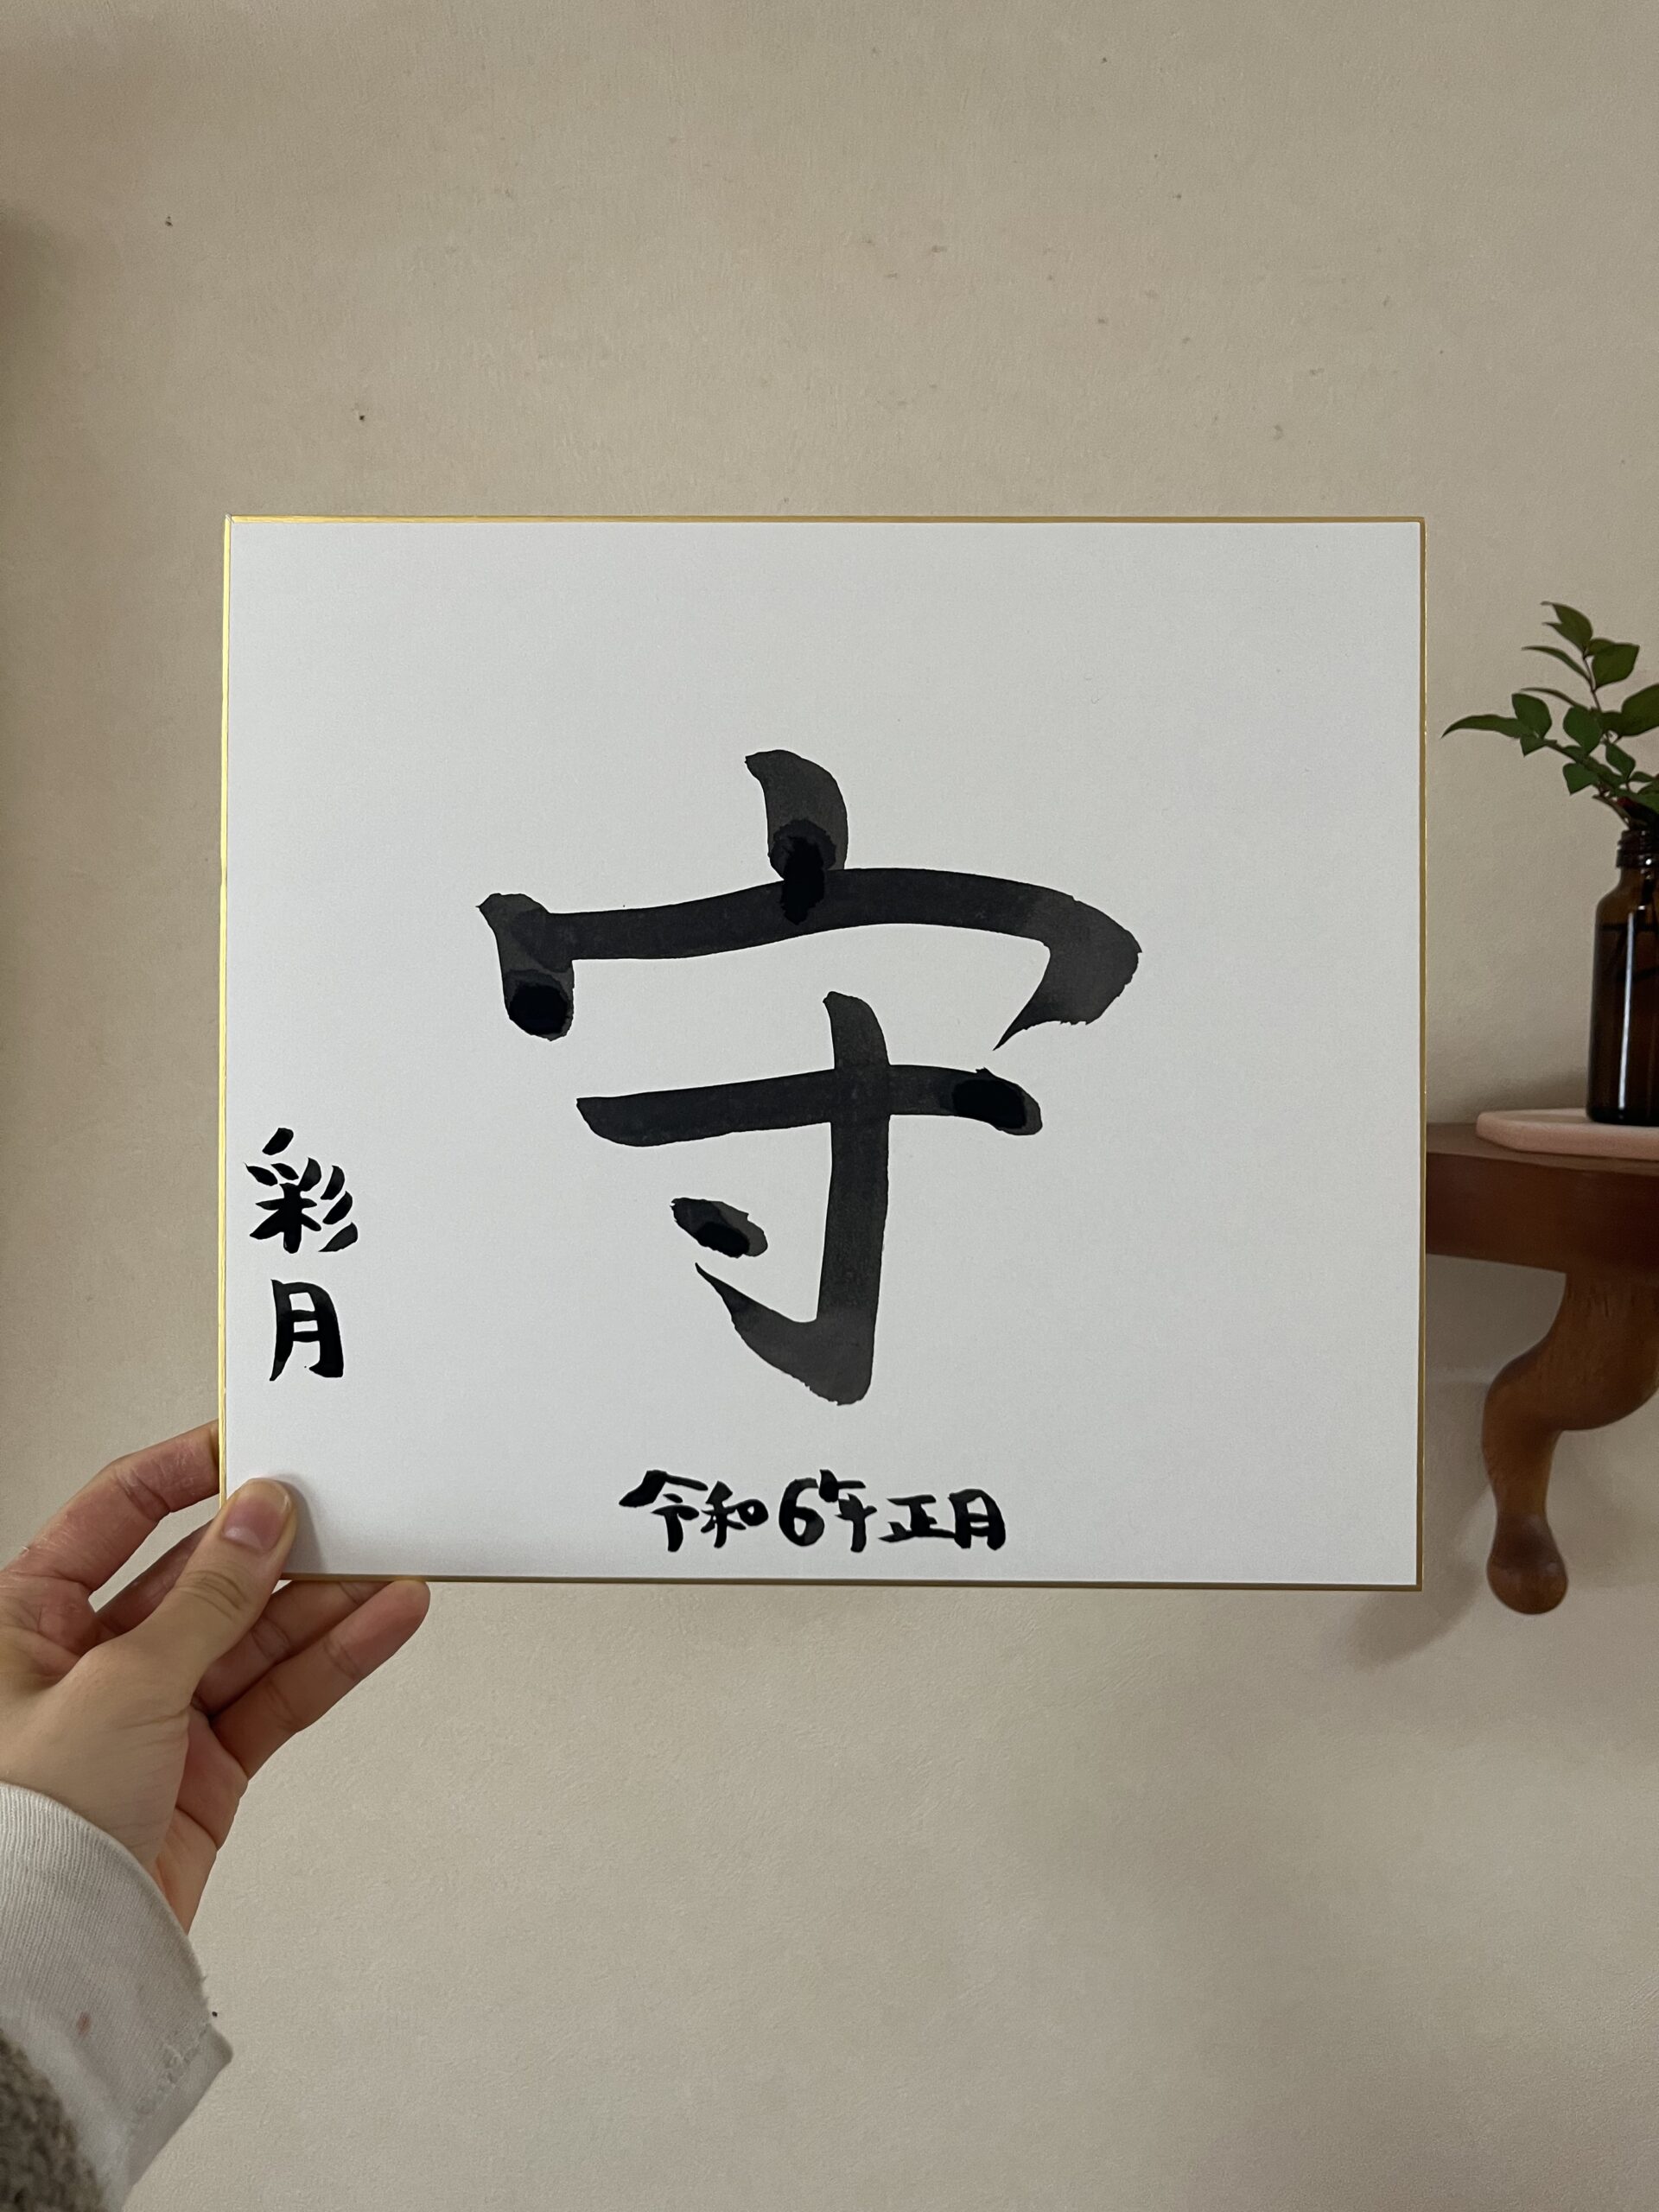 守
彩月
令和6年正月